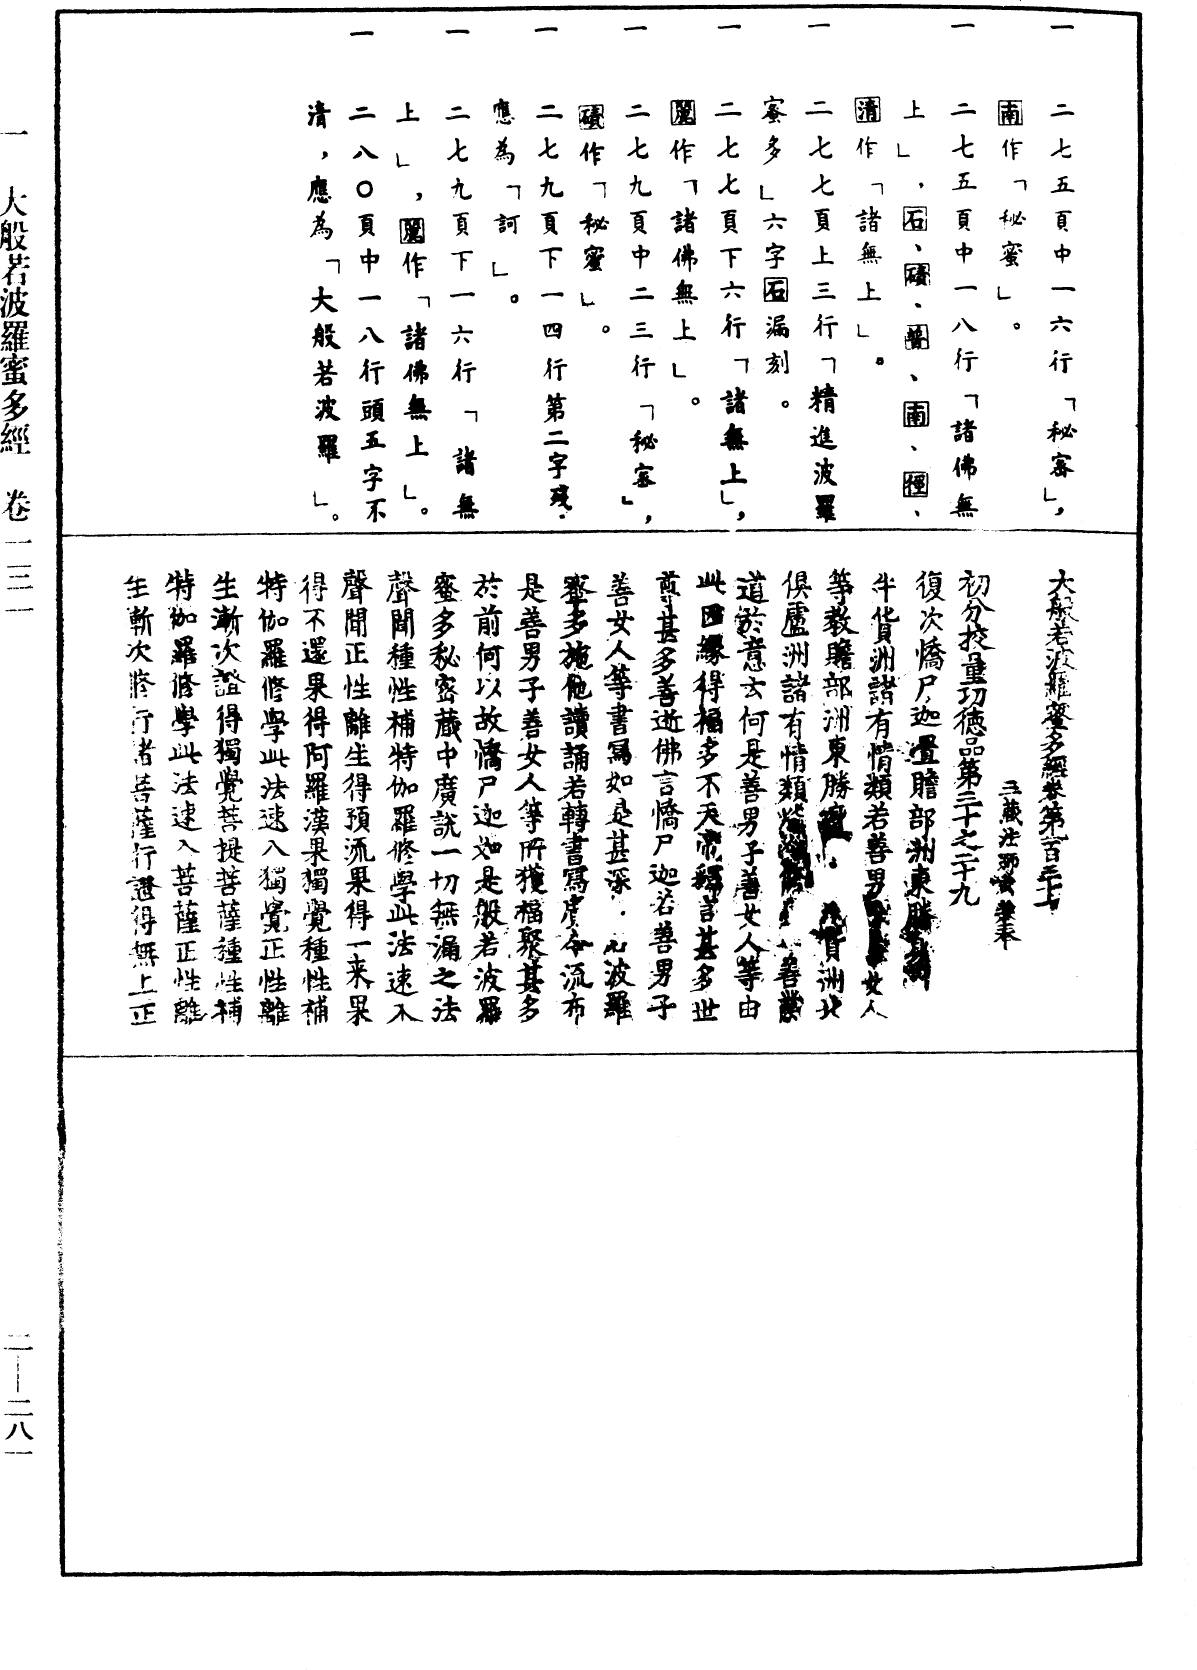 一 二七五頁中一六行「秘密」，
南作「秘蜜」。
一 二七五頁中一八行「諸佛無
上」，石、磧、普、南、徑、
清作「諸無上」。
一 二七七頁上三行「精進波羅
蜜多」六字石漏刻。
一 二七七頁下六行「諸無上」，
麗作「諸佛無上」。
一 二七九頁中二三行「秘密」，
磧作「秘蜜」。
一 二七九頁下一四行第二字殘，
應為「訶」。
一 二七九頁下一六行「諸無
上」，麗作「諸佛無上」。
一 二八〇頁中一八行頭五字不
清，應為「大般若波羅」。
大般若波羅蜜多經卷第一百三十一
三藏法師玄奘奉
初分校量功德品第三十之二十九
復次憍尸迦置贍部洲東勝身洲
牛貨洲諸有情類若善男子善女人
等教贍部洲東勝身 牛貨洲北
俱盧洲諸有情類 善業
道於意云何是善男子善女人等由
此因緣得福多不天帝釋言甚多世
尊甚多善逝佛言憍尸迦若善男子
善女人等書寫如是甚深 波羅
蜜多施他讀誦若轉書寫廣令流布
是善男子善女人等所獲福聚甚多
於前何以故憍尸迦如是般若波羅
蜜多秘密藏中廣說一切無漏之法
聲聞種性補特伽羅修學此法速入
聲聞正性離生得預流果得一來果
得不還果得阿羅漢果獨覺種性補
特伽羅修學此法速入獨覺正性離
生漸次證得獨覺菩提菩薩種性補
特伽羅修學此法速入菩薩正性離
生漸次修行諸菩薩行證得無上正
一 大般若波羅蜜多經 卷一三一
二—二八一